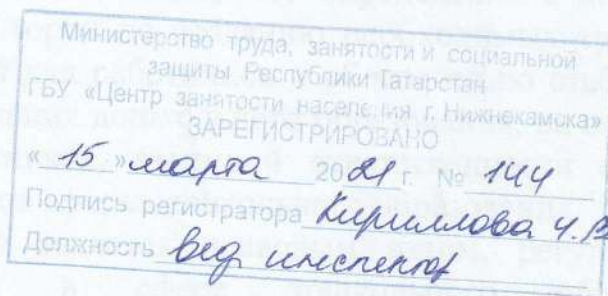 Министерство труда, занятости и социальной
защиты Республики Татарстан
ГБУ «Центр занятости населения г. Нижнекамска»
ЗАРЕГИСТРИРОВАНО
«15» марта 2021 г. № 144
Подпись регистратора Кириллова Ч.В
Должность вед инспектор